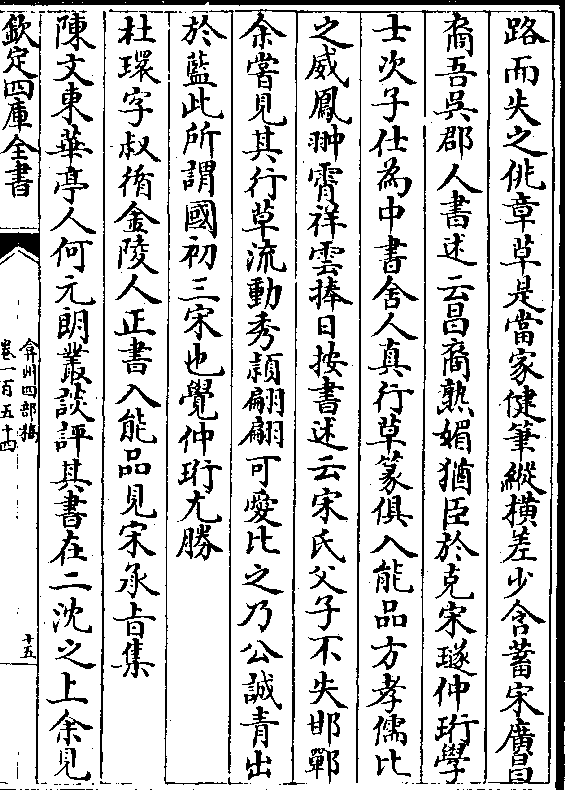 路而失之佻章草是當家健筆縱橫差少含蓄宋廣昌
裔吾呉郡人書述云昌裔熟媚猶臣於克宋璲仲珩學
士次子仕為中書舍人真行草篆俱入能品方孝儒比
之威鳳翀霄祥雲捧日按書述云宋氏父子不失邯鄲
余嘗見其行草流動秀頴翩翩可愛比之乃公誠青出
於藍此所謂國初三宋也覺仲珩尤勝
杜環字叔循金陵人正書入能品見宋承旨集
陳文東華亭人何元朗叢談評其書在二沈之上余見
欽定四庫全書
弇州四部稿
卷一百五十四
十五